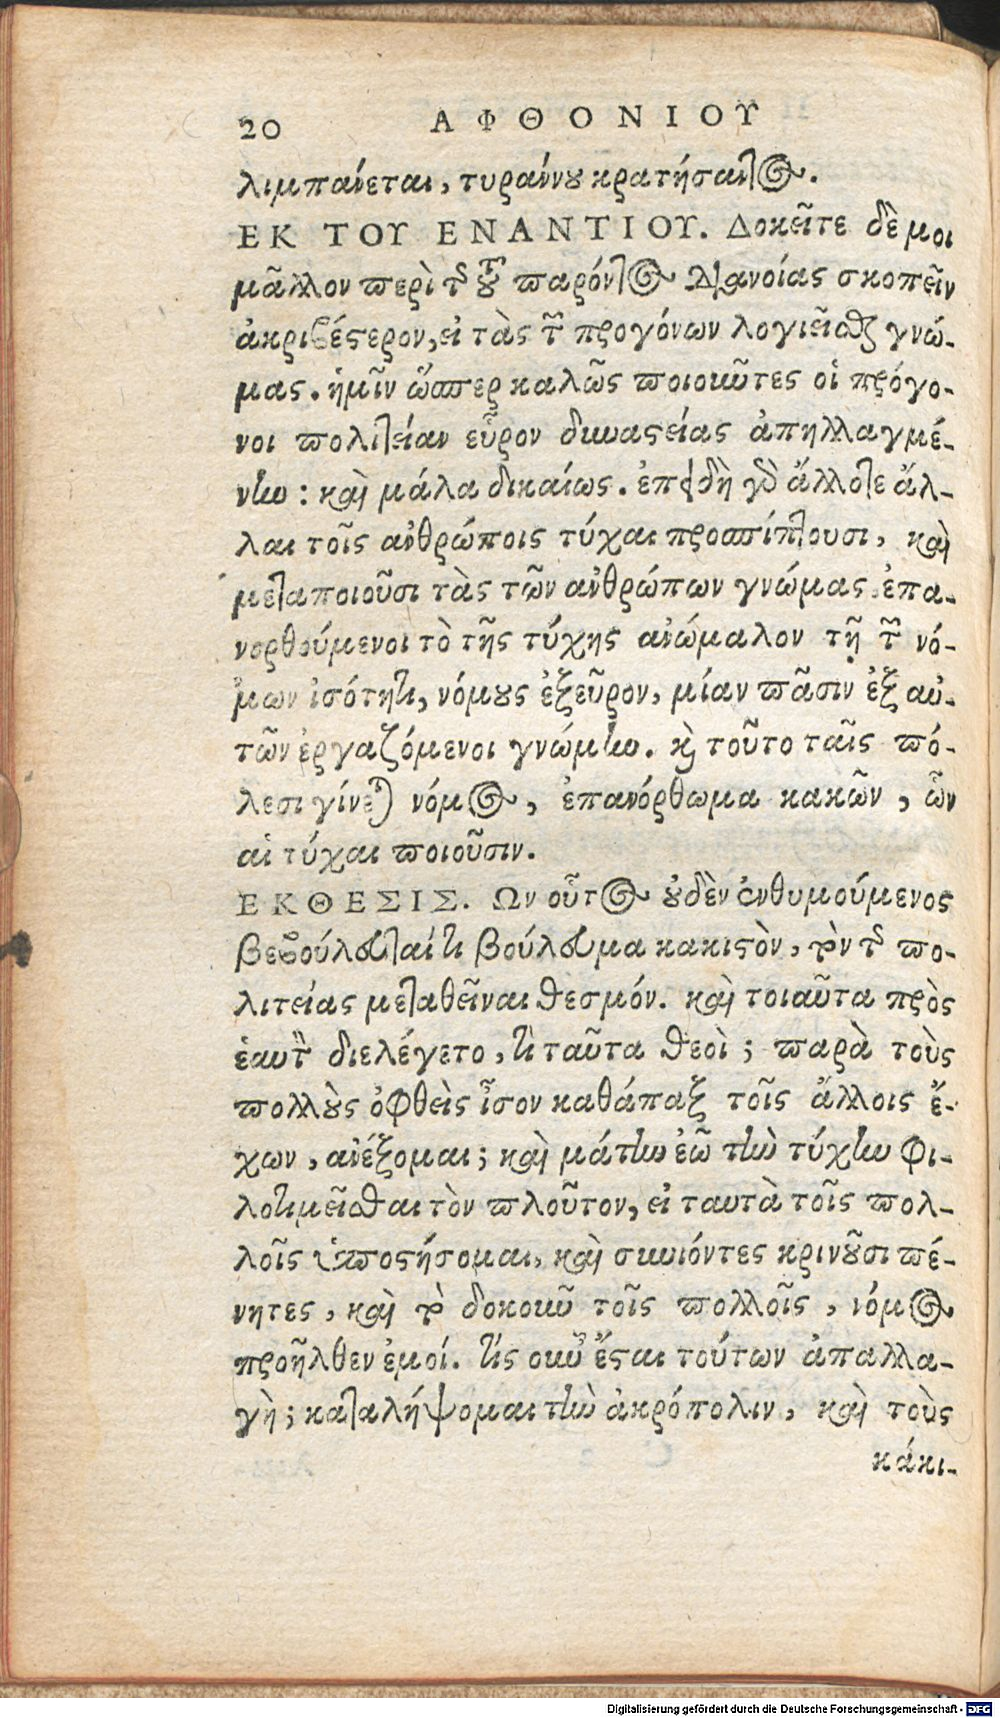 20 ΑΦΘΟΝΙΟΥ
λιμπάνεται, τυράννου κρατήσαντος.
ΕΚ ΤΟΥ ΕΝΑΝΤΙΟΥ. Δοκεῖτε δέ μοι
μᾶλλον περὶ τῆς τοῦ παρόντος διανοίας σκοπεῖν
ἀκριβέστερον, εἰ τὰς τῶν προγόνων λογιεῖσθε γνώ-
μας. ἡμῖν ὥσπερ καλῶς ποιοῦντες οἱ πρόγο-
νοι πολιτείαν εὗρον δυναστείας ἀπηλλαγμέ-
νην: καὶ μάλα δικαίως. ἐπειδὴ γὰρ ἄλλοτε ἄλ-
λαι τοῖς ἀνθρώποις τύχαι προσπίπτουσι, καὶ
μεταποιοῦσι τὰς τῶν ἀνθρώπων γνώμας. ἐπα-
νορθούμενοι τὸ τῆς τύχης ἀνώμαλον τῇ τῶν νό-
μων ἰσότητι, νόμους ἐξεῦρον, μίαν πᾶσιν ἐξ αὐ-
τῶν ἐργαζόμενοι γνώμην. καὶ τοῦτο ταῖς πό-
λεσι γίνεται νόμος, ἐπανόρθωμα κακῶν, ὧν
αἱ τύχαι ποιοῦσιν.
ΕΚΘΕΣΙΣ. Ων οὗτος οὐδὲν ἐνθυμούμενος
βεβούλευταί τι βούλευμα κακιστὸν, τὸν τῆς πο-
λιτείας μεταθεῖναι θεσμόν. καὶ τοιαῦτα πρὸς
ἑαυτὸν διελέγετο, τί ταῦτα θεοὶ; παρὰ τοὺς
πολλοὺς ὀφθεὶς ἶσον καθάπαξ τοῖς ἄλλοις ἔ-
χων, ἀνέξομαι; καὶ μάτην ἐῶ τὴν τύχην φι-
λοτιμεῖσθαι τὸν πλοῦτον, εἰ ταυτὰ τοῖς πολ-
λοῖς ὑποστήσομαι, καὶ συνιόντες κρινοῦσι πέ-
νητες, καὶ τὸ δοκοῦν τοῖς πολλοῖς, νόμος
προῆλθεν ἐμοί. τίς οὖν ἔσται τούτων ἀπαλλα-
γὴ; καταλήψομαι τὴν ἀκρόπολιν, καὶ τοὺς
κάκι-
Digitalisierung gefördert durch die Deutsche Forschungsgemeinschaft - DFG